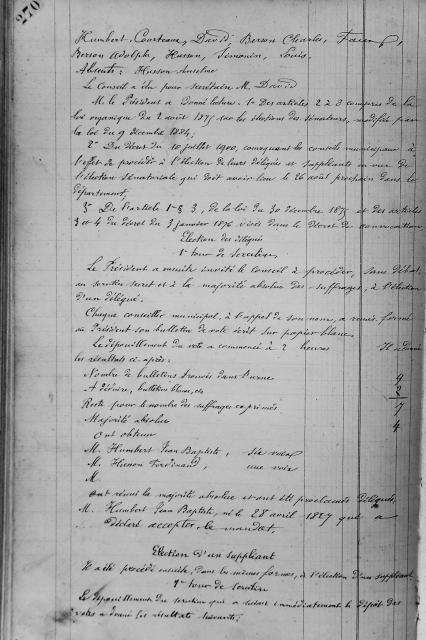 270
Humbert, Courteaux, David, Berson Charles,
Berson Adolphe, Husson, Simonin, Louis.
Absents: Husson Anselme
Le Conseil a élu pour secrétaire M. David
M. le Président a donné lecture: 1° Des articles 2 à 8 compris de la
loi organique du 2 août 1875 sur les élections des sénateurs, modifiée par
la loi du 9 décembre 1884;
2° Du décret du 10 juillet 1900, convoquant les conseils municipaux à
l'effet de procéder à l'élection de leurs délégués et suppléants en vue de
l'élection sénatoriale qui doit avoir lieu le 26 août prochain dans le
département,
3° De l'article 1er § 3, de la loi du 30 décembre 1875 et des articles
3 et 4 du décret du 3 janvier 1876 visés dans le décret de convocation,
Election des délégués
1er tour de scrutin.
Le Président a ensuite invité le Conseil à procéder, sans débat,
au scrutin secret et à la majorité absolue des suffrages, à l'élection
d'un délégué.
Chaque conseiller municipal, à l'appel de son nom, a remis fermé
au Président son bulletin de vote écrit sur papier blanc.
Le dépouillement du vote a commencé à 2 heures Il a donné
les résultats ci-après:
Nombre de bulletins trouvés dans l'urne 9
A déduire, bulletins blancs, etc 2
Reste pour le nombre des suffrages exprimés 7
Majorité absolue 4
Ont obtenu
M. Humbert Jean Baptiste, six voix
M. Ferdinand, une voix
M.
Ont réuni la majorité absolue et ont été proclamés délégués,
M. Humbert Jean Baptiste, né le 28 avril 1827 qui a
déclaré accepter le mandat.
Election d'un suppléant
Il a été procédé ensuite, dans les mêmes formes, à l'élection d'un suppléant
1er tour de scrutin
Le dépouillement du scrutin qui a suivi immédiatement le dépôt des
votes a donné les résultats suivants: